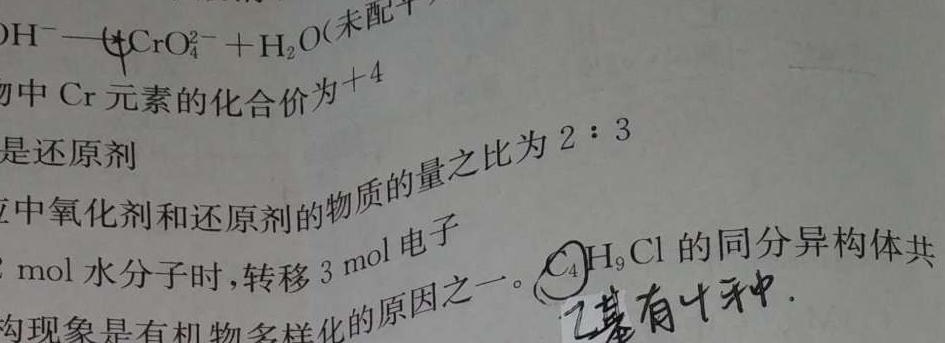 OH⁻—CrO₄²⁻+H₂O(未配平
物中 Cr 元素的化合价为+4
是还原剂
应中氧化剂和还原剂的物质的量之比为 2∶3
2 mol 水分子时,转移 3 mol 电子
构现象是有机物多样化的原因之一。C₄H₉Cl 的同分异构体共
基有4种.